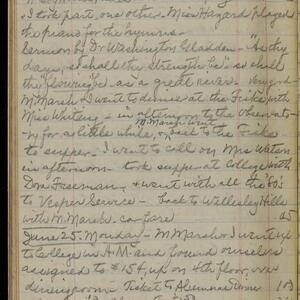 I took part, one other. Miss Hazard played
the piano for the hymns —
Sermon by Dr. Washington Gladden — "As thy
days, so shall thy strength be" — so shall
the "flowing" be — as a great river. Very good
M. Marsh & I went to dinner at the Fiske with
Miss Whiting — in afternoon to the Observato-
ry for a little while, & back to the Fiske
to supper — I went to call on Mrs Watson
in afternoon — took supper at College with
Dora Freeman, & went with all the '80's
to Vesper Service — Back to Wellesley Hills
with M. Marsh. car fare 25
June 25. Monday — M. Marsh & I went up
to College in A.M. and found ourselves
assigned to #154, up on 4th floor, over
dining room — Ticket to Alumnae Dinner 1.03